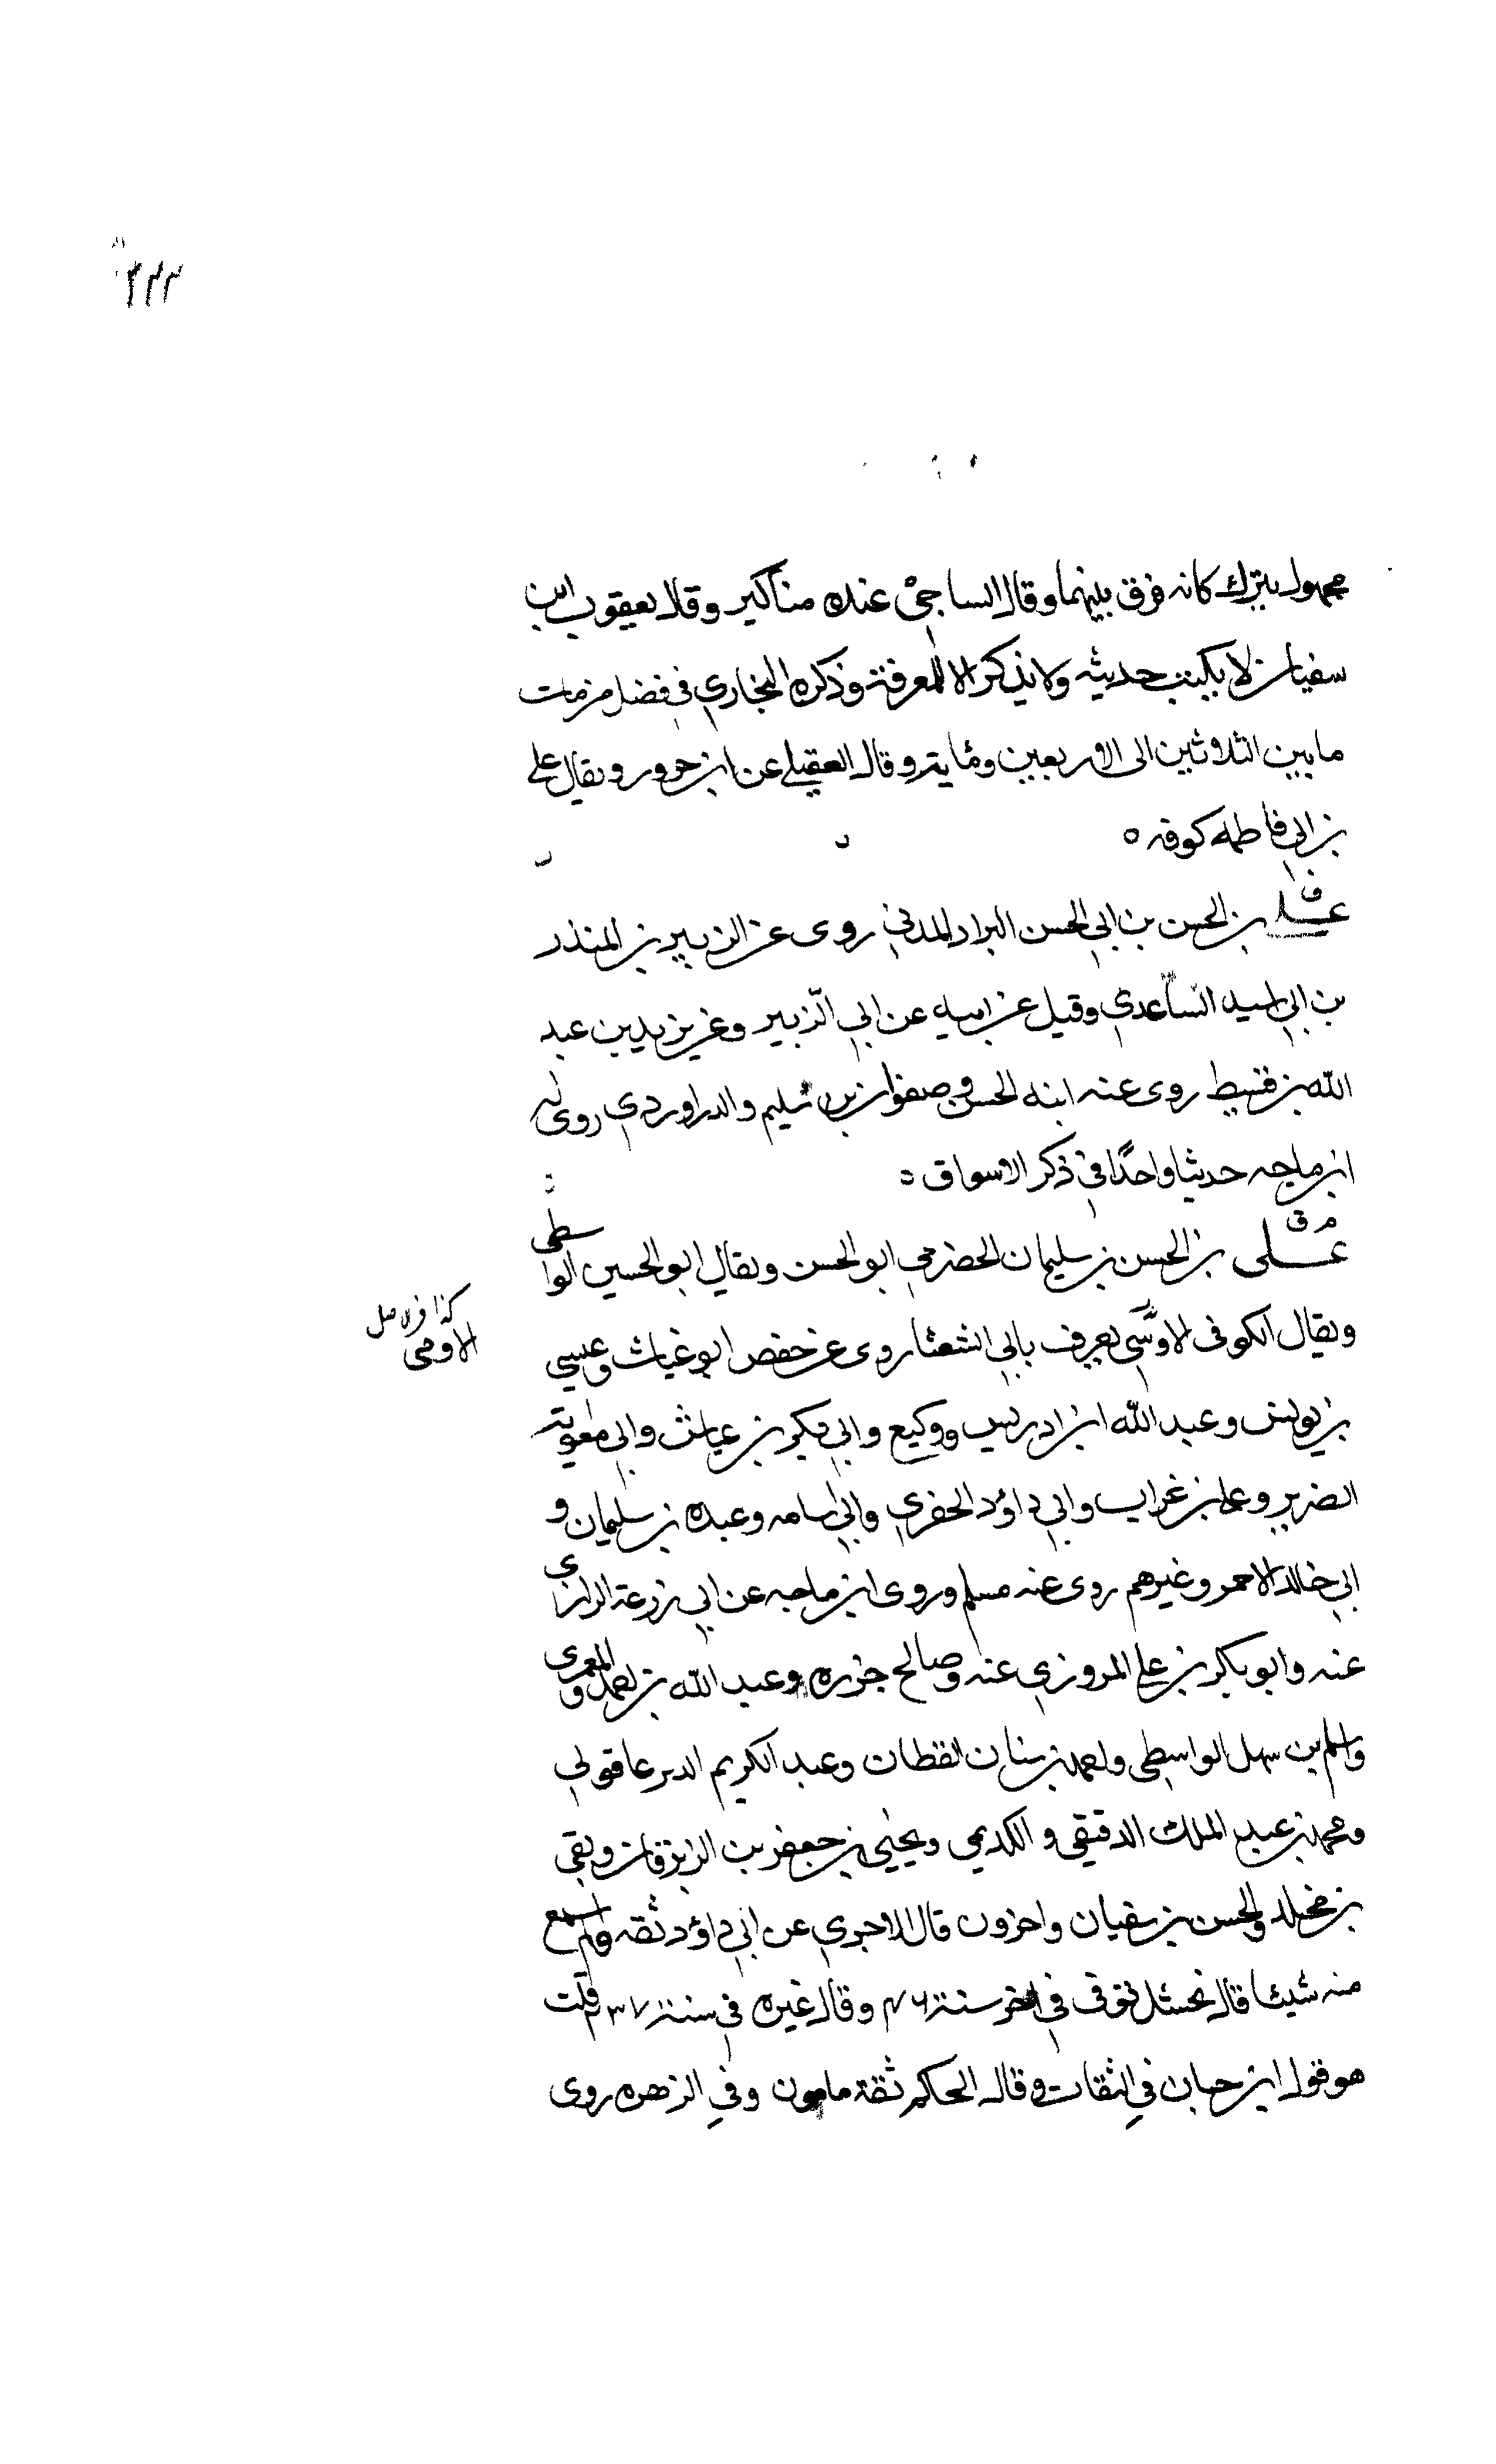 مجهول يترك كانه فرق بينهما وقال الساجي عنده مناكير وقال يعقوب ابن
سفيان لا يكتب حديثه ولا يذكر الا للمعرفة وذكره البخاري في فضل من مات
ما بين الثلاثين الى الاربعين ومايتة وقال العقيلي عن ابن حزور ويقال علي
بن ابي فاطمه كوفه ه
ق
علي بن الحسن بن ابي الحسن البراد المدني روى عن الزبير بن المنذر
بن ابي اسيد الساعدي وقيل عن ابيه عن ابي الزبير وعن يزيد بن عبد
الله بن قسيط روى عنه ابنه الحسن وصفوان بن سليم والدراوردي روى له
ابن ماجه حديثا واحدًا في ذكر الاسواق ه
م ق
علي بن الحسن بن سليمان الحضرمي ابو الحسن ويقال ابو الحسين الواسطى
ويقال الكوفى الاوسي يعرف بابي الشعثا روى عن حفص ابو غياث وعيسي
كذا في الاصل
الاومى
بن يونس وعبد الله ابن ادريس ووكيع وابي بكر بن عياش وابي معوية
الضرير وعلي بن غراب وابي داؤد الحفري وابي اسامه وعبده بن سليمان و
ابي خالد الاحمر وغيرهم روى عنه مسلم وروى ابن ماجه عن ابي زرعة الرازى
عنه وابو بكر بن علي المروزي عنه وصالح جزره وعبد الله بن احمد و المعمرى
واسلم بن سهل الواسطى واحمد بن سنان القطان وعبد الكريم الديرعاقولي
ومحمد بن عبد الملك الدقيقي والكديمي ويحيي بن جعفر بن الزبرقان وبقي
بن مخلد والحسن بن سفيان واخرون قال الاجري عن ابي داؤد ثقه ولم اسمع
منه شيئا قال بحشل توفى في اخر سنة ٢٣٦ وقال غيره في سنة ٢٣٧ قلت
هو قول ابن حبان في الثقات وقال الحاكم ثقة مامون وفي الزهره روى